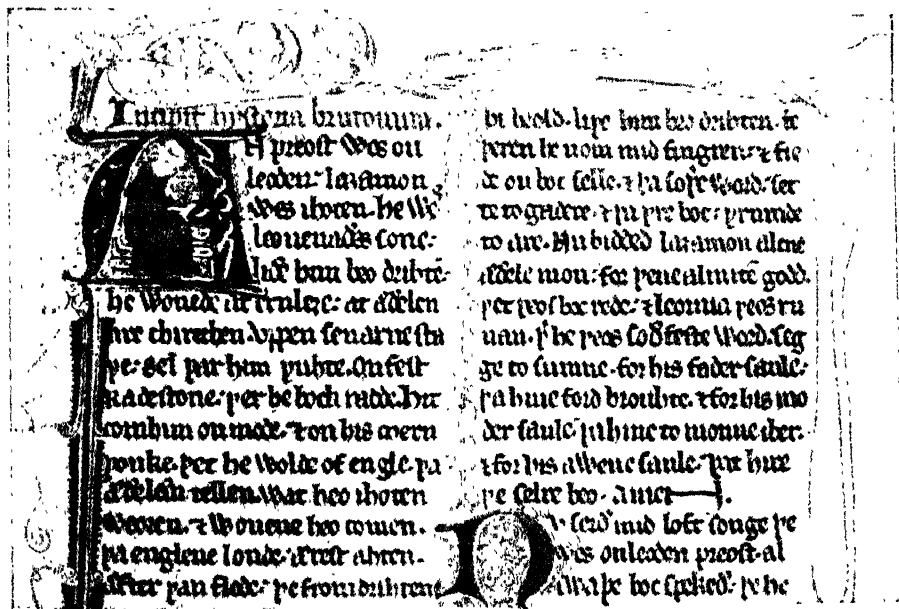 Incipit hystoria brutonum.
AN preost wes on
leoden· laȝamon
wes ihoten· he wes
leouenaðes sone·
liðe him beo drihtē·
he wonede at ernleȝe· at æðelen
are chirechen· vppen seuarne sta
þe· sel þar him þuhte. On fest
Radestone· þer he boch radde. Hit
com him on mode· ⁊ on his mern
þonke· þet he wolde of engle· þa
æðelæn tellen. wat heo ihoten
weoren· ⁊ wonene heo comen·
þa englene londe· ærest ahten·
æfter þan flode· þe from drihtene
bi heold· liþe him beo drihten. fe
þeren he nom mid fingren· ⁊ fie
de on boc felle· ⁊ þa soþe word· set
te to gadere· ⁊ þa þre boc· þrumde
to are· Nu bidded laȝamon alcne
æðele mon· for þene almitē godd·
þet þeos boc rede· ⁊ leornia þeos ru
nan· þ̄ he þeos soðfeste word· seg
ge to sumne· for his fader saule·
þa hine forð brouhte· ⁊ for his mo
der saule· þa hine to monne iber·
⁊ for his awene saule· þat hire
þe selre beo· amen.
Nu seið mid loft songe þe
wes on leoden preost· al
swa þe boc spekeð· þe he